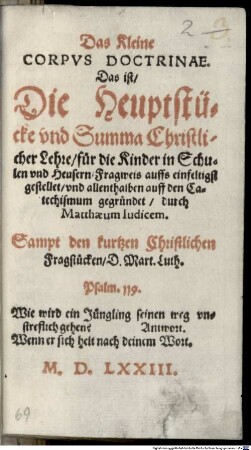 2 3
Das Kleine
CORPVS DOCTRINAE.
Das ist/
Die Heuptstü-
cke vnd Summa Christli-
cher Lehre/für die Kinder in Schu-
len vnd Heusern Fragweis auffs einfeltigst
gestellet/vnd allenthalben auff den Ca-
techismum gegründet/ durch
Matthæum Iudicem.
Sampt den kurtzen Christlichen
Fragstücken/D. Mart. Luth.
Psalm. 119.
Wie wird ein Jüngling seinen weg vn-
streflich gehen? Antwort.
Wenn er sich helt nach deinem Wort.
M. D. LXXIII.
69